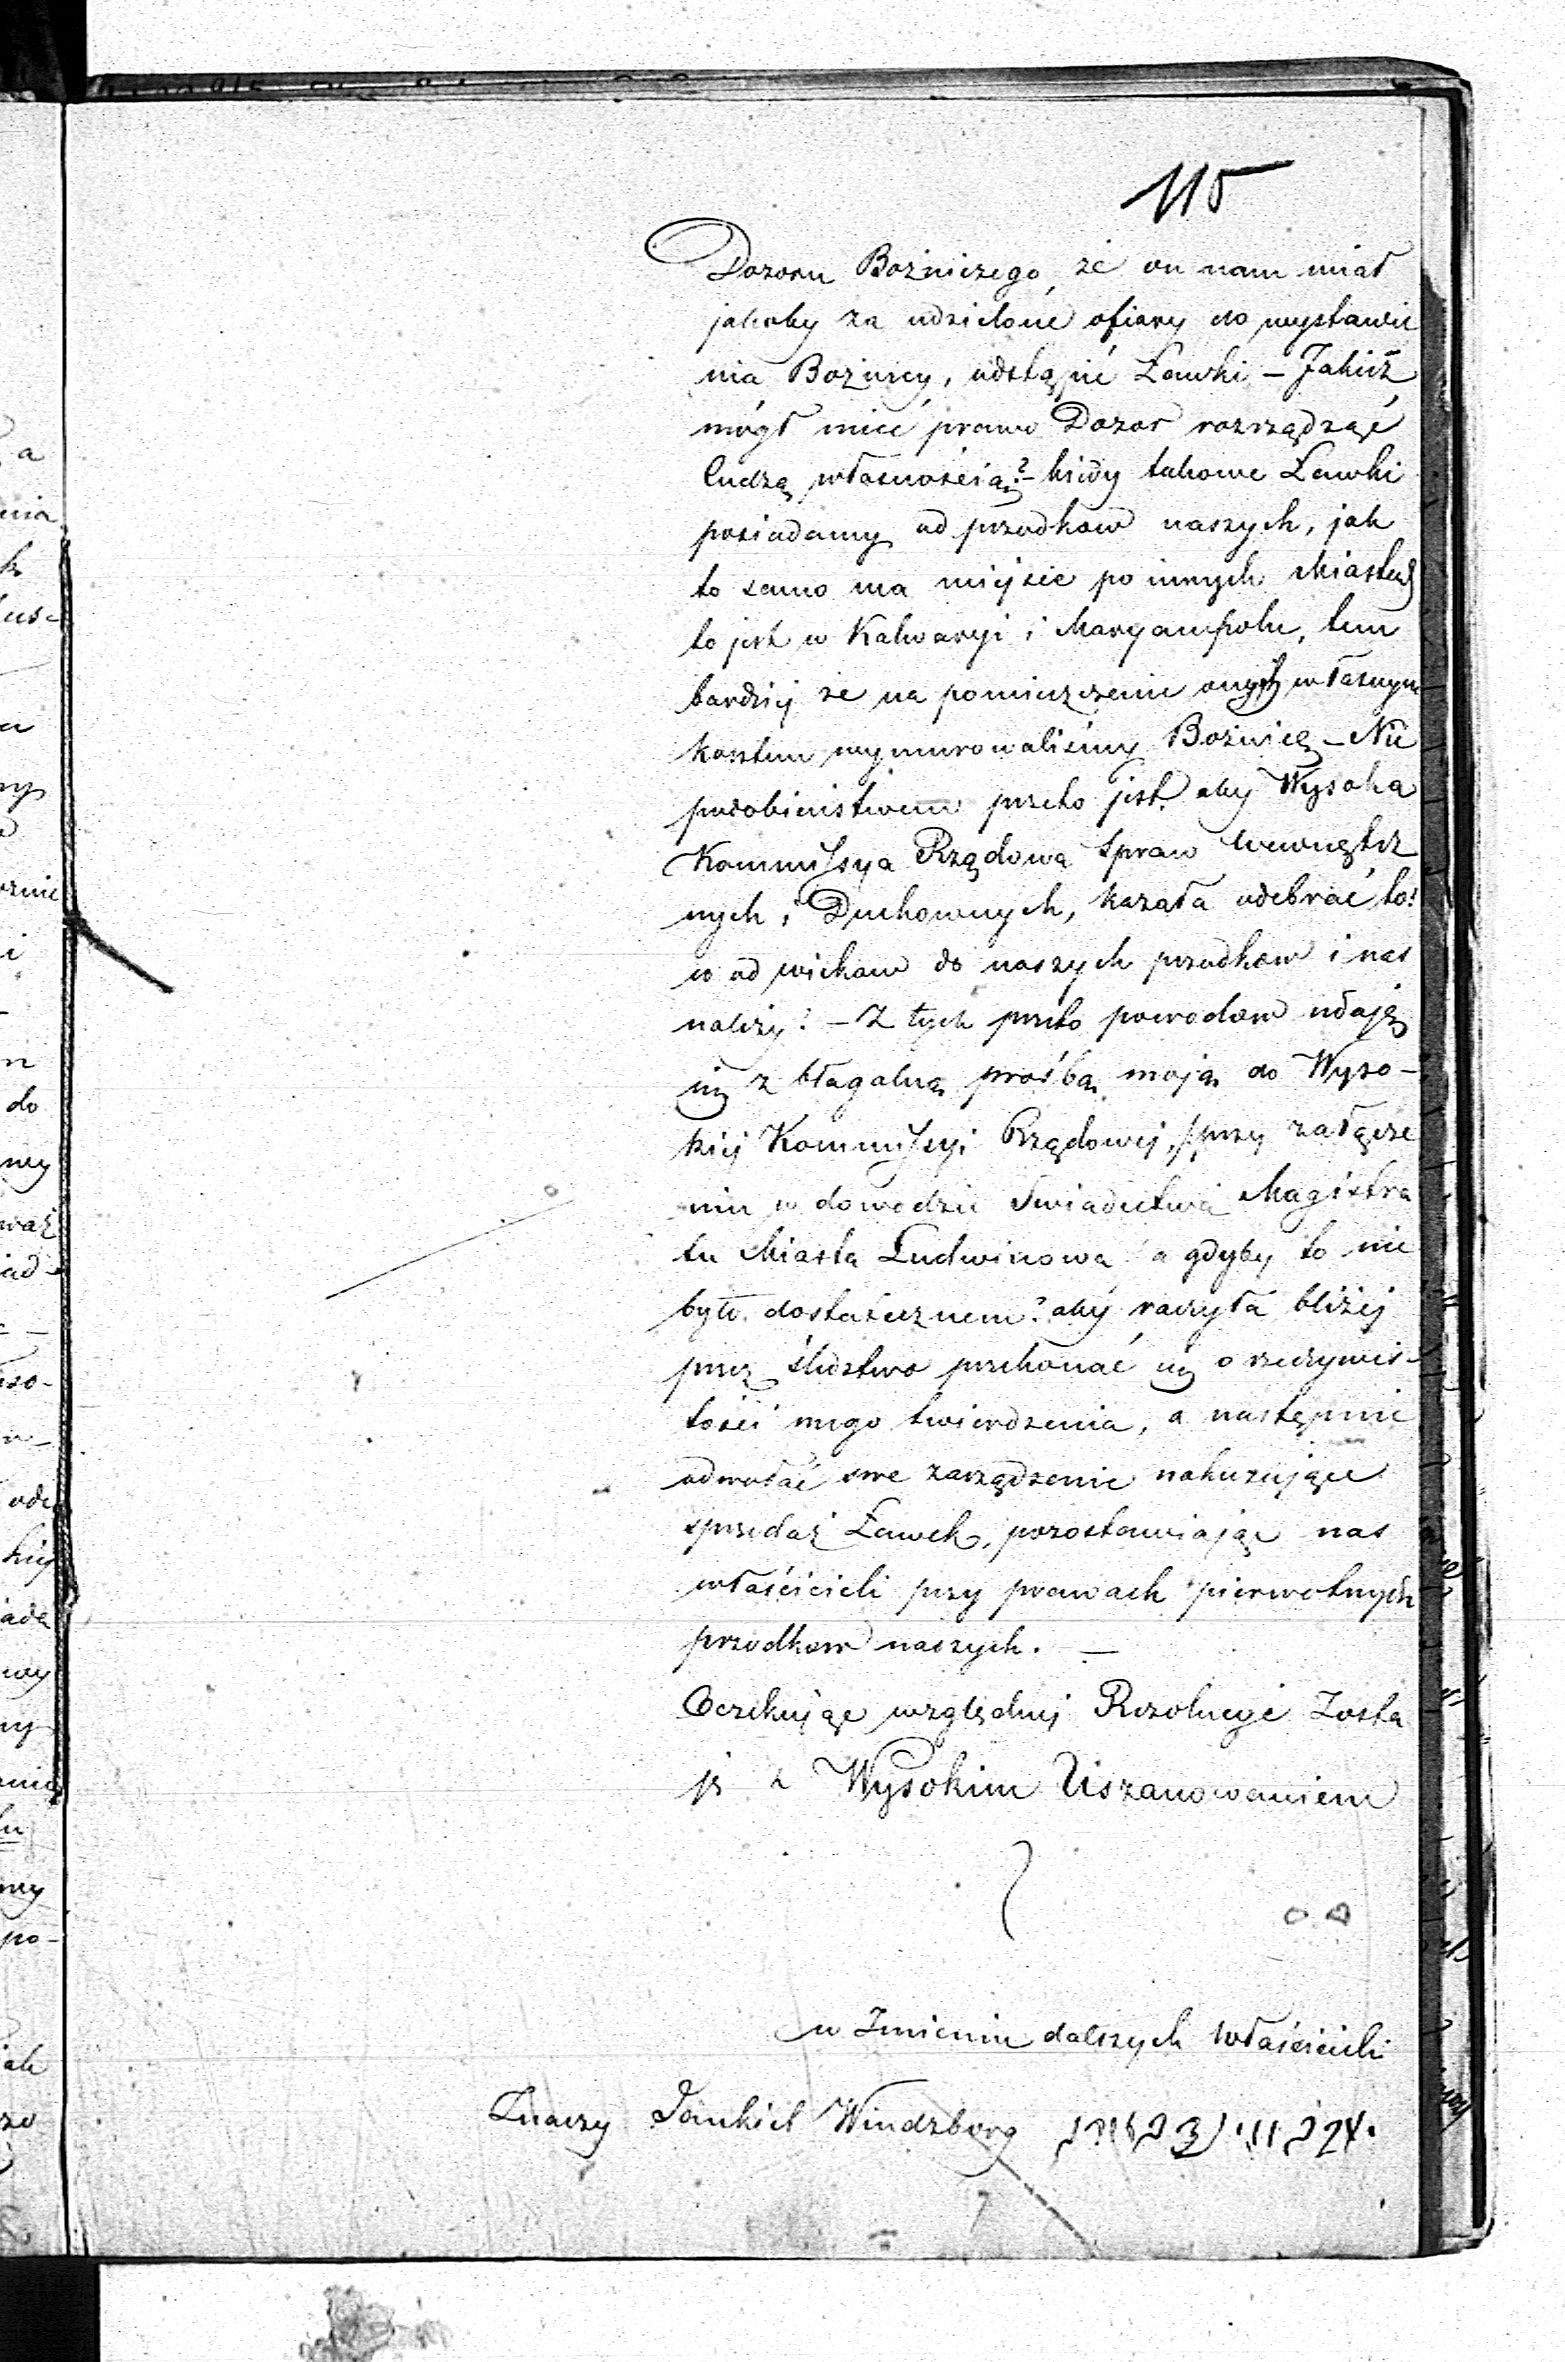 115
Dozoru Bożniczego, że on nam miał
jakoby za udzielone ofiary do wystawie
nia Bożnicy, odstąpić Ławki – Jakiż
mógł mieć prawo Dozor rozrządzać
cudzą własnością? – kiedy takowe Ławki
posiadamy od przodków naszych, jak
to samo ma miejsce po innych Miastach
to jest w Kalwaryi i Maryampolu, tem
bardziej że na pomieszczenie onych własnym
kosztem wymurowaliśmy Bożnicę – Nie
podobieństwem przeto jest, aby Wysoka
Kommissya Rządowa Spraw Wewnętrz
nych i Duchownych, kazała odebrać to!
co od wieków do naszych przodków i nas
należy! – Z tych przeto powodów udaję
się z błagalną prośbą moją do Wyso-
kiej Kommissyi Rządowej, przy załącze
niu w dowodzie Swiadectwa Magistra
tu Miasta Ludwinowa a gdyby to nie
było dostatecznem? aby raczyła bliżej
przez śledztwo przekonać się o rzeczywis-
tości mego twierdzenia, a następnie
odwołać swe zarządzenie nakazujące
sprzedaż Ławek, pozostawiając nas
właścicieli przy prawach pierwotnych
przodków naszych. —
Oczekując względnej Rezolucyi Zosta
ję z Wysokim Uszanowaniem
w Imieniu dalszych Właścicieli
Jankiel Windzberg